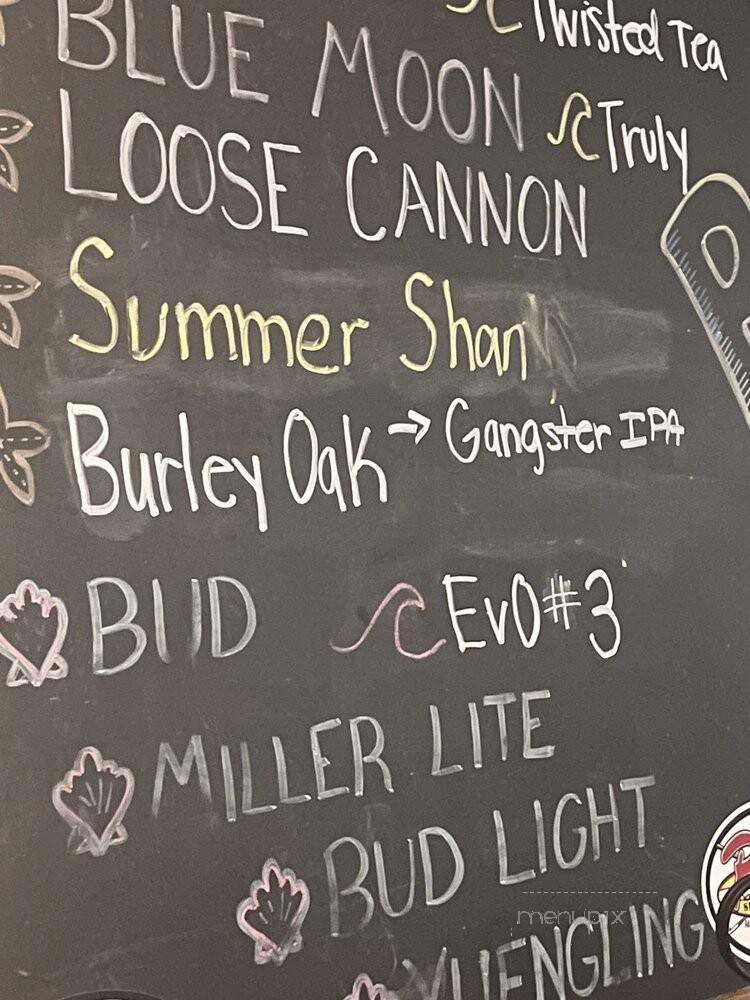 Twisted Tea
BLUE MOON
Truly
LOOSE CANNON
Summer Shan
Burley Oak → Gangster IPA
BUD
EvO#3
MILLER LITE
BUD LIGHT
menupix
YUENGLING